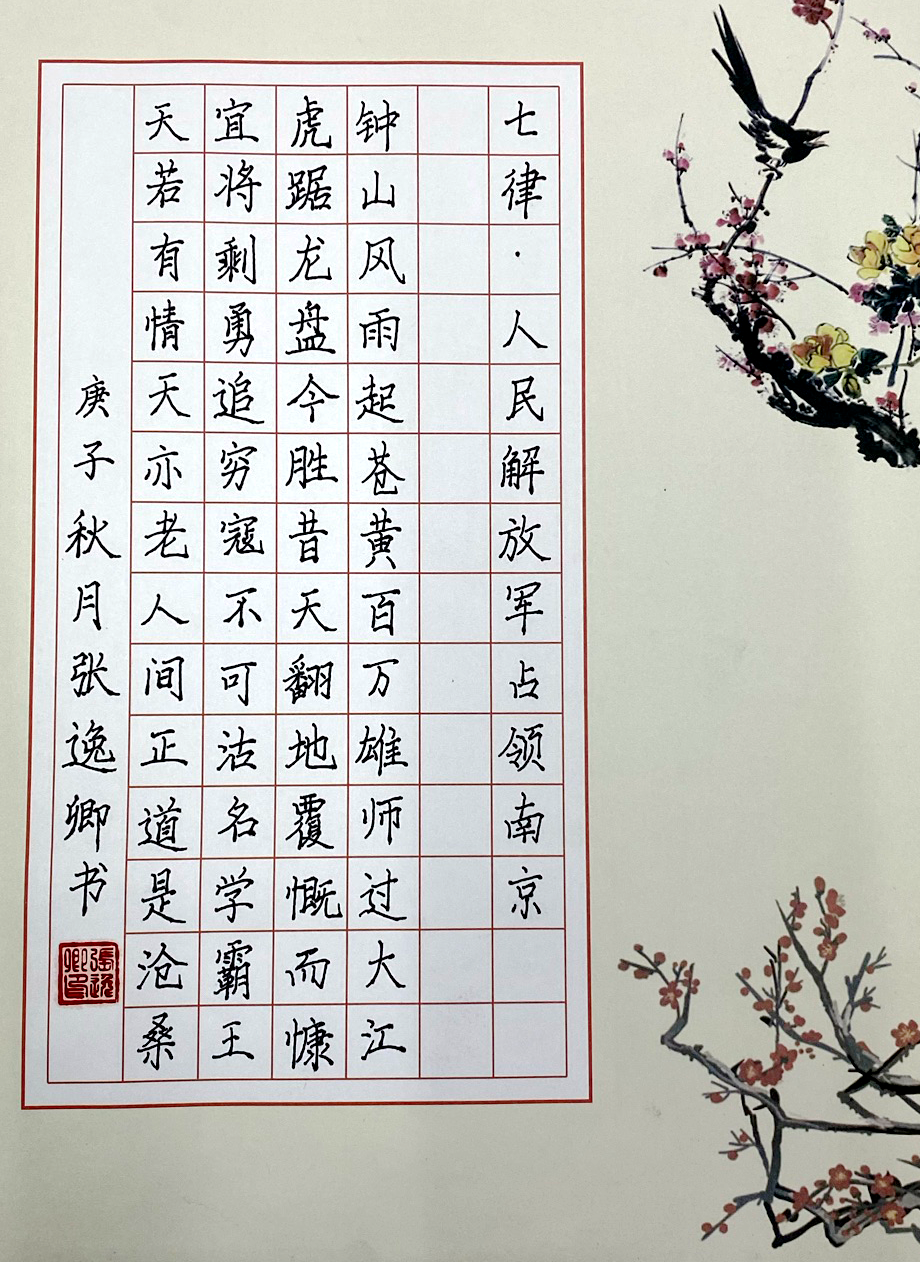 七律·人民解放军占领南京
钟山风雨起苍黄百万雄师过大江
虎踞龙盘今胜昔天翻地覆慨而慷
宜将剩勇追穷寇不可沽名学霸王
天若有情天亦老人间正道是沧桑
庚子秋月张逸卿书
張逸卿印